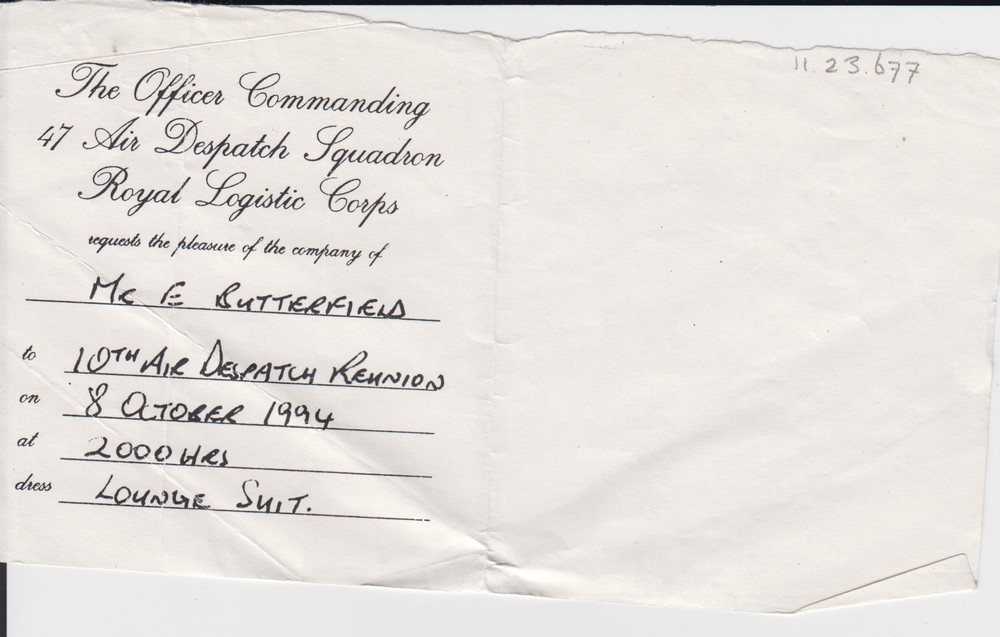 The Officer Commanding
47 Air Despatch Squadron
Royal Logistic Corps
requests the pleasure of the company of
MR E BUTTERFIELD
to 10TH AIR DESPATCH REUNION
on 8 OCTOBER 1994
at 2000 HRS
dress LOUNGE SUIT.
11.23.677